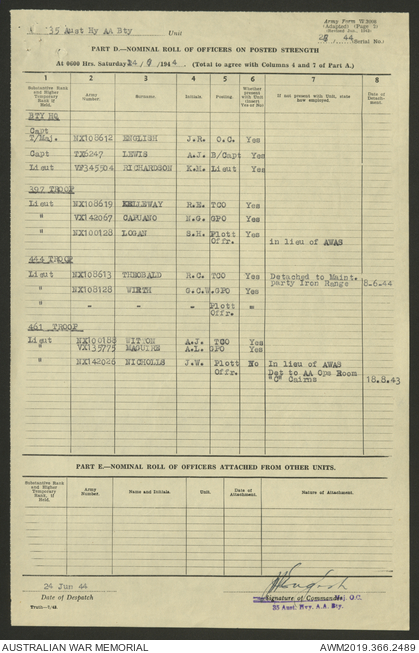 '35 Aust Hy AA Bty Unit
Army Form W.3008
(Adapted) (Page 2)
44 (Serial No.)
PART D.—NOMINAL ROLL OF OFFICERS ON POSTED STRENGTH
At 0600 Hrs. Saturday 24/ /1944. (Total to agree with Columns 4 and 7 of Part A.)
1 2 3 4 5 6 7 8
Substantive Rank and Higher Temporary Rank if Held. Army Number. Surname. Initials. Posting. Whether present with Unit (Insert Yes or No) If not present with Unit, state how employed. Date of Detachment.
BTY HQ
Capt
T/Maj. NX108612 ENGLISH J.R. O.C. Yes
Capt TX6247 LEWIS A.J. B/Capt Yes
Lieut VF345504 RICHARDSON K.M. Lieut Yes
397 TROOP
Lieut NX108619 KELLEWAY R.E. TCO Yes
" VX142067 CAPUANO N.G. GPO Yes
" NX100128 LOGAN S.H. Plott Yes
Offr. in lieu of AWAS
444 TROOP
Lieut NX108613 THEOBALD R.C. TCO Yes Detached to Maint.
" NX108128 WIRTH G.C.W. GPO Yes party Iron Range 8-6-44
" - - - Plott -
Offr.
461 TROOP
Lieut NX100188 WITCOM A.J. TCO Yes
VX135775 MAGUIRE A.L. GPO Yes
" NX142026 NICHOLLS J.W. Plott No In lieu of AWAS
Offr. Det to AA Ops Room
"C" Cairns 18.8.43
PART E.—NOMINAL ROLL OF OFFICERS ATTACHED FROM OTHER UNITS.
Substantive Rank and Higher Temporary Rank, if Held. Army Number. Name and Initials. Unit. Date of Attachment. Nature of Attachment.
24 Jun 44
Date of Despatch
Signature of Commander Maj. O.C.
35 Aust. Hvy. A.A. Bty.
AUSTRALIAN WAR MEMORIAL
AWM2019.366.2489